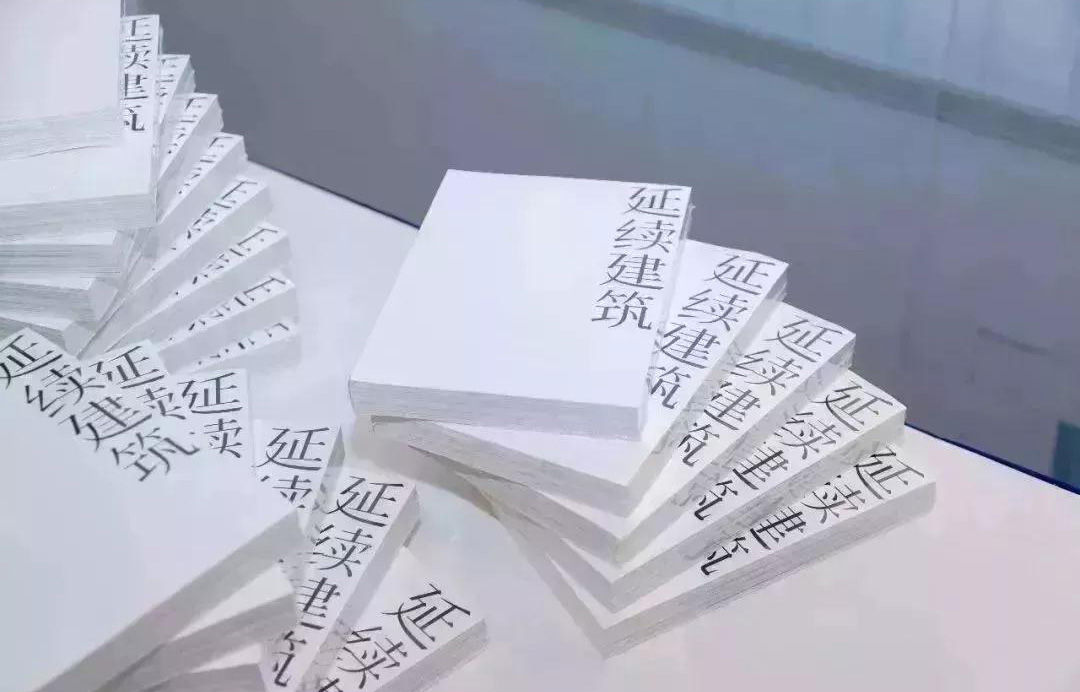 续建筑
延续建筑
延续建筑
延续建筑
延续建筑
延续建筑
延续建筑
延
延
延
延续建筑
延续